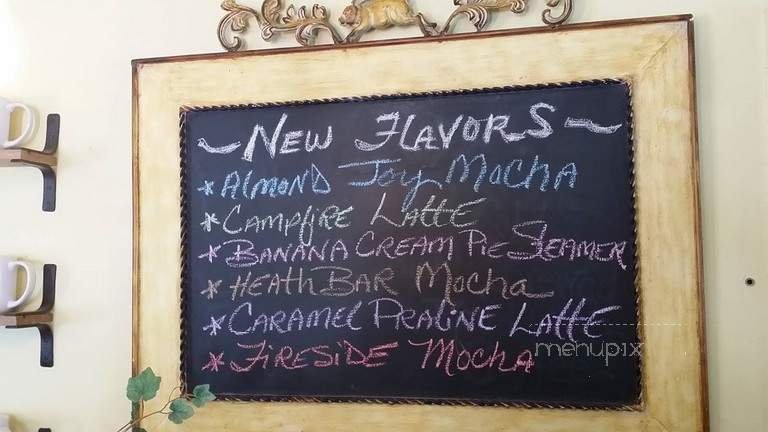 ~ New Flavors ~
* Almond Joy Mocha
* Campfire Latte
* Banana Cream Pie Steamer
* Heath Bar Mocha
* Caramel Praline Latte
menupix
* Fireside Mocha